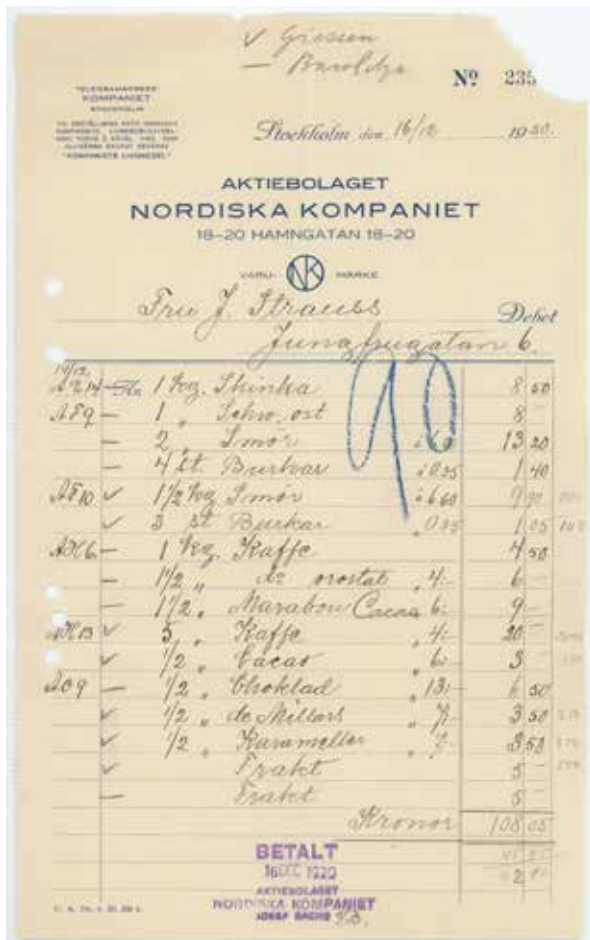 ✓ Giessen
—
Nº 235
TELEGRAMADRESS:
KOMPANIET
STOCKHOLM
Stockholm den 16/12 1920.
AKTIEBOLAGET
NORDISKA KOMPANIET
18–20 HAMNGATAN 18–20
VARU- NK MÄRKE
Fru J. Strauss Debet
Jungfrugatan 6.
90
1 kg. Skinka 8 50
A89 — 1 „ Schw. ost 8 –
— 2 „ Smör 13 20
— 4 st. Burkar à 0.35 1 40
✓ 1 1/2 kg Smör à 6.60 9 90
✓ 3 st Burkar „ 0.35 1 05
— 1 kg. Kaffe 4 50
— 1 1/2 „ do orostat „ 4:– 6 –
— 1 1/2 „ Marabou Cacao 6:– 9 –
✓ 5 „ Kaffe „ 4:– 20 –
✓ 1/2 „ Cacao „ 6:– 3 –
— 1/2 „ Choklad „ 13:– 6 50
✓ 1/2 „ do Millars „ 7:– 3 50
✓ 1/2 „ Karameller „ 7:– 3 50
✓ Frakt 5 –
— Frakt 5 –
Kronor 108 05
BETALT
16 DEC 1920
AKTIEBOLAGET
NORDISKA KOMPANIET
JOSEF SACHS